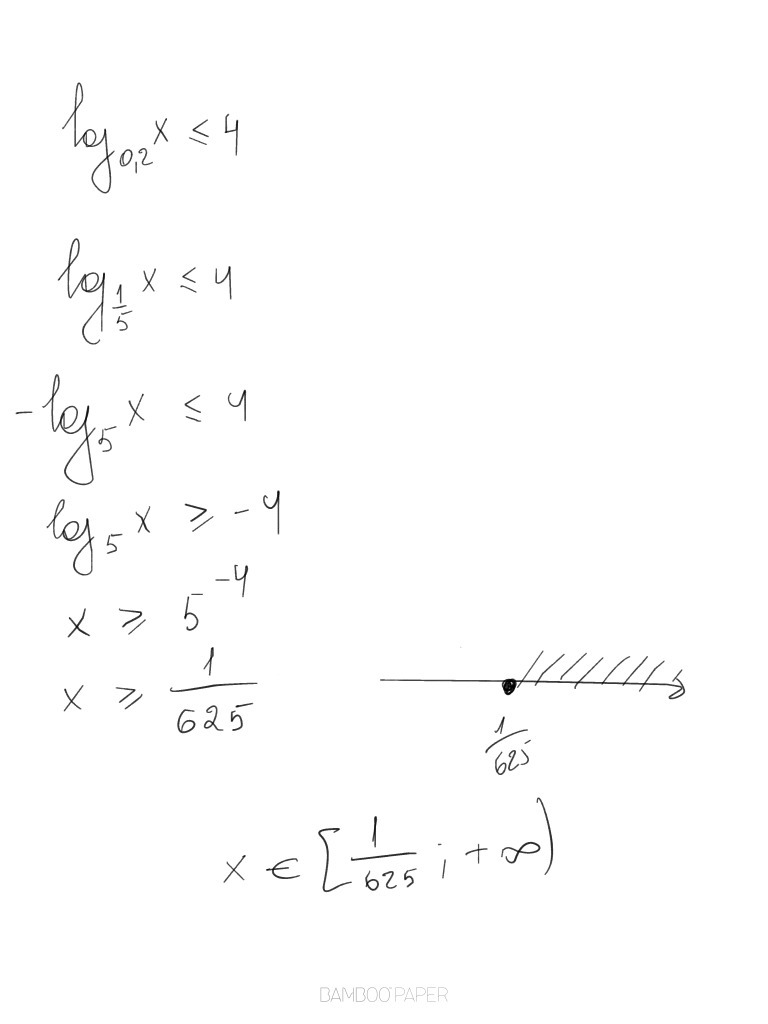 log₀,₂ x ≤ 4
log_{1/5} x ≤ 4
-log₅ x ≤ 4
log₅ x ≥ -4
x ≥ 5⁻⁴
x ≥ 1/625
1/625
x ∈ [1/625 ; +∞)
BAMBOO PAPER